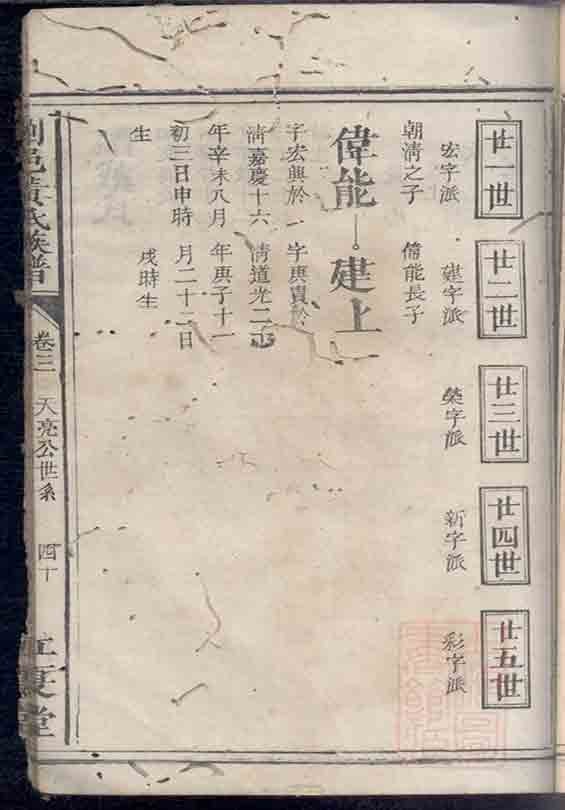 廿一世
廿二世
廿三世
廿四世
廿五世
宏字派
建字派
榮字派
新字派
彩字派
朝清之子
偉能
字宏興於
清嘉慶十六
年辛未八月
初三日申時
生
偉能長子
建上
字典貴於
清道光二十
年庚子十一
月二十二日
戌時生
瀏邑黃氏族譜
卷三
天亮公世系
四十
江夏堂